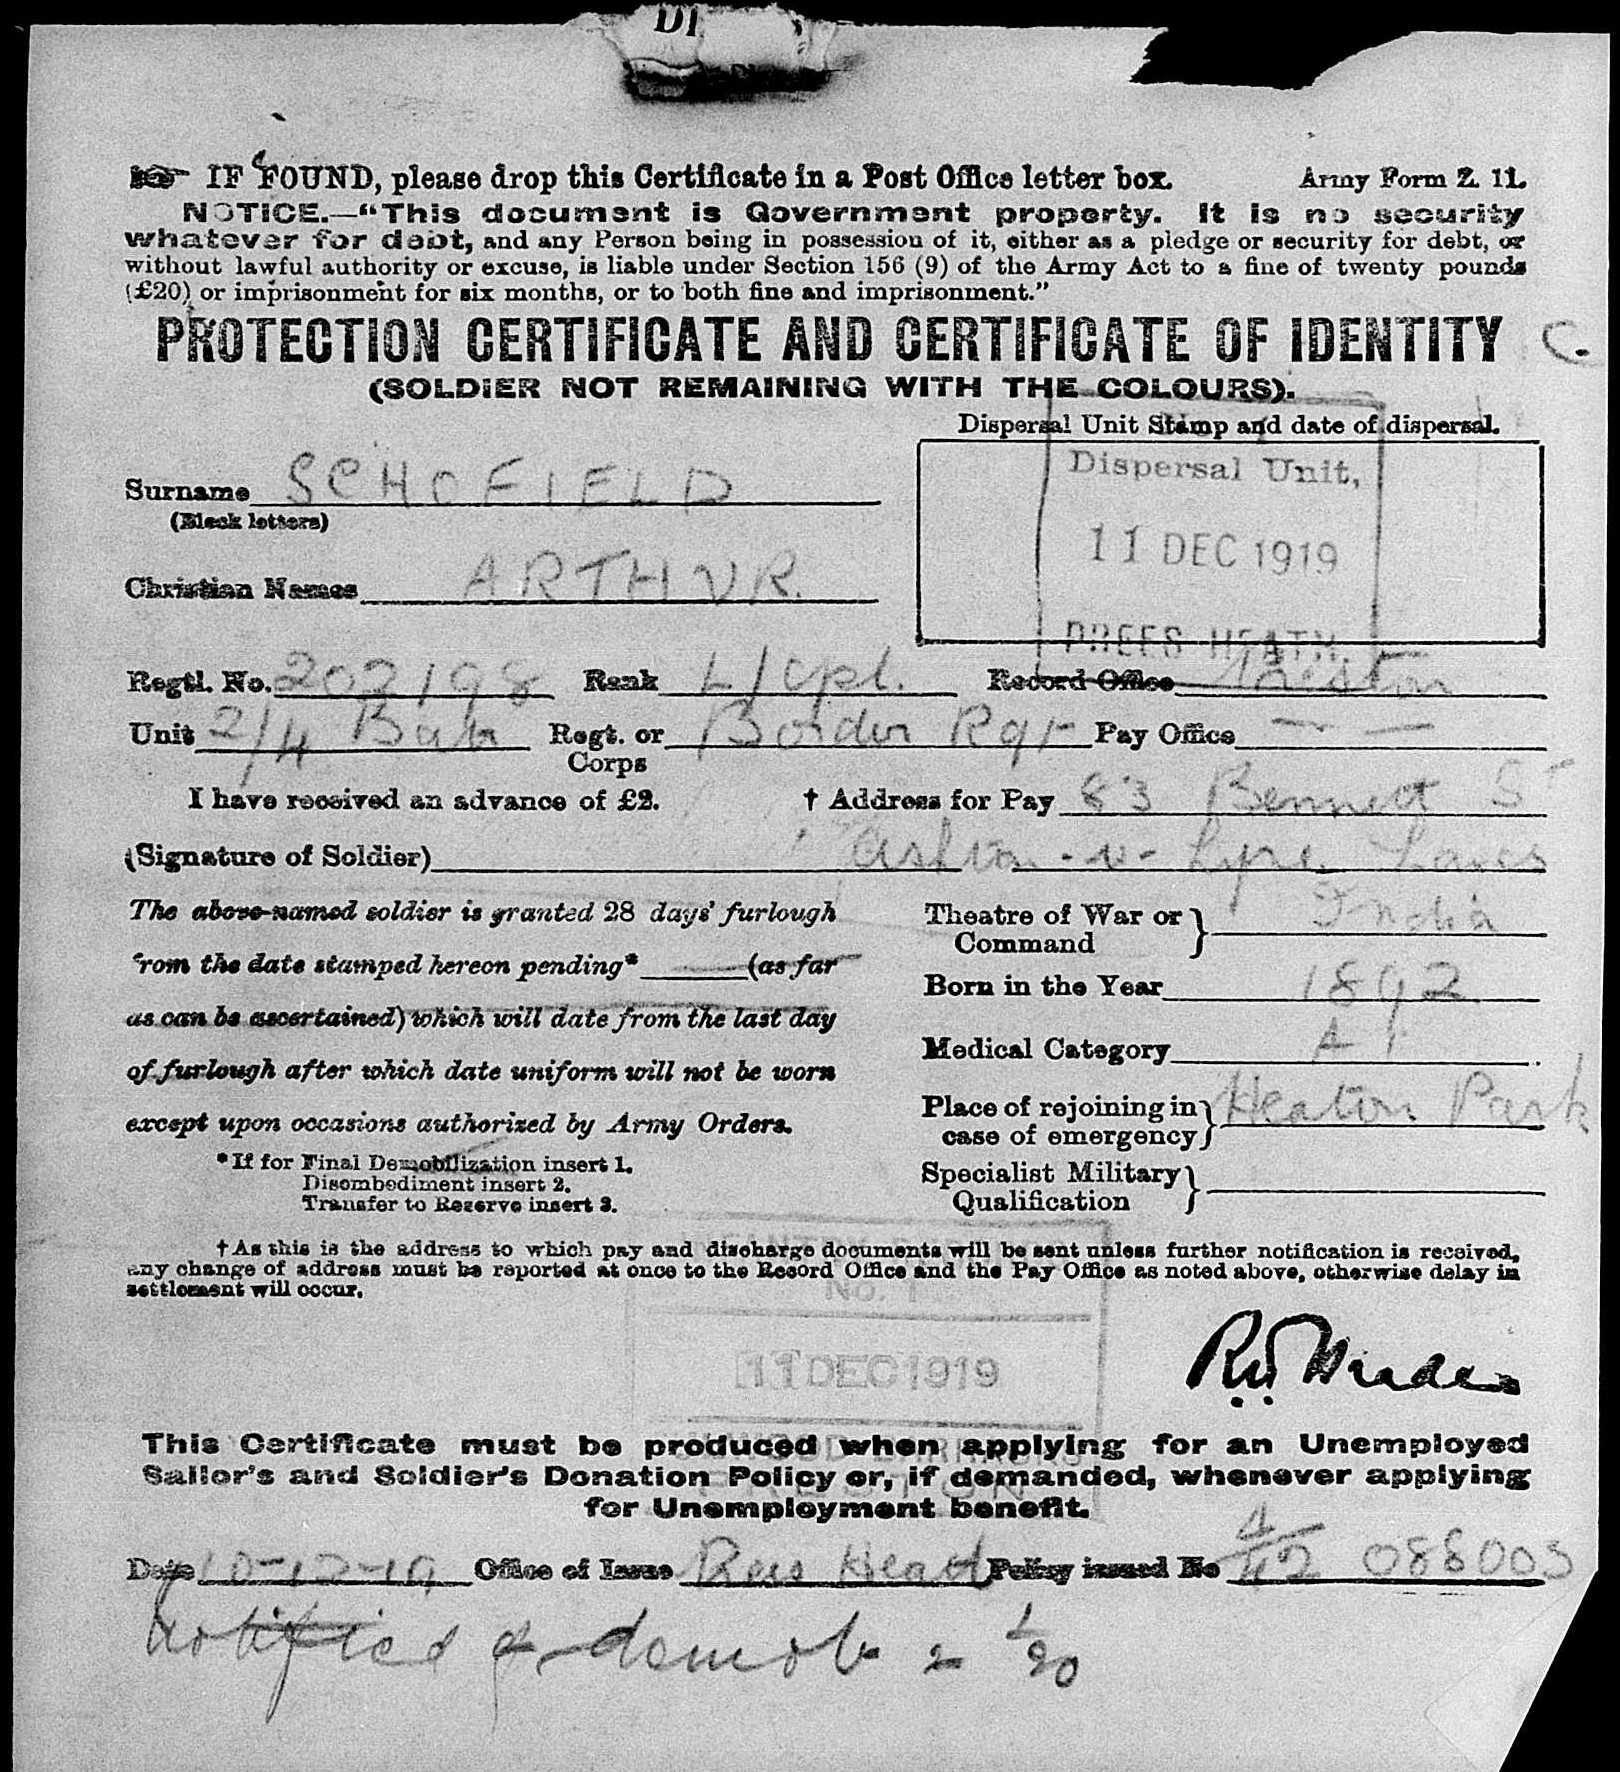 DI
IF FOUND, please drop this Certificate in a Post Office letter box. Army Form Z. 11.
NOTICE.—"This document is Government property. It is no security
whatever for debt, and any Person being in possession of it, either as a pledge or security for debt, or
without lawful authority or excuse, is liable under Section 156 (9) of the Army Act to a fine of twenty pounds
(£20) or imprisonment for six months, or to both fine and imprisonment."
PROTECTION CERTIFICATE AND CERTIFICATE OF IDENTITY C.
(SOLDIER NOT REMAINING WITH THE COLOURS).
Dispersal Unit Stamp and date of dispersal.
Dispersal Unit,
11 DEC 1919
PREES HEATH
Surname SCHOFIELD
(Block letters)
Christian Names ARTHUR.
Regtl. No. 202198 Rank L/Cpl. Record Office Preston
Unit 2/4 Batn Regt. or Corps Border Rgt Pay Office — —
I have received an advance of £2. † Address for Pay 83 Bennett St
(Signature of Soldier) Ashton-u-Lyne Lancs
The above-named soldier is granted 28 days' furlough
from the date stamped hereon pending* (as far
as can be ascertained) which will date from the last day
of furlough after which date uniform will not be worn
except upon occasions authorized by Army Orders.
*If for Final Demobilization insert 1.
Disembodiment insert 2.
Transfer to Reserve insert 3.
Theatre of War or Command } India
Born in the Year 1892
Medical Category A 1
Place of rejoining in case of emergency } Heaton Park
Specialist Military Qualification }
† As this is the address to which pay and discharge documents will be sent unless further notification is received,
any change of address must be reported at once to the Record Office and the Pay Office as noted above, otherwise delay in
settlement will occur.
No. 1
11 DEC 1919
PRESTON
This Certificate must be produced when applying for an Unemployed
Sailor's and Soldier's Donation Policy or, if demanded, whenever applying
for Unemployment benefit.
Date 10-12-19 Office of Issue Prees Heath Policy issued No 4/42 088003
notified of demob 2 1/20